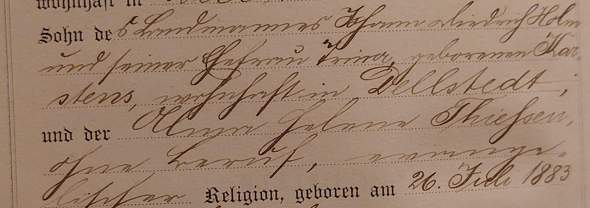 wohnhaft in
Sohn des Landmannes Johann Diedrich Holm
und seiner Ehefrau Trina, geborenen Kar-
stens, wohnhaft in Dellstedt;
und der Alma Helene Thießen,
ohne Beruf, evange-
lischer Religion, geboren am 26. Juli 1883